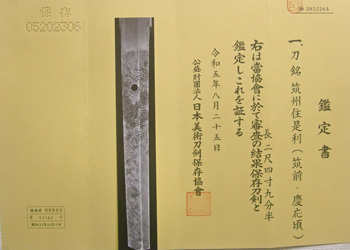 鑑定書
一、刀 銘 筑州住是利(筑前・慶応頃)
長 二尺四寸九分半
右は當協會に於て審査の結果保存刀剣と
鑑定しこれを証する
令和五年八月二十五日
公益財團法人 日本美術刀剣保存協會
保存
05202306
3032264